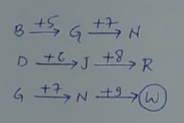 B +5→ G +7→ N
D +6→ J +8→ R
G +7→ N +9→ W